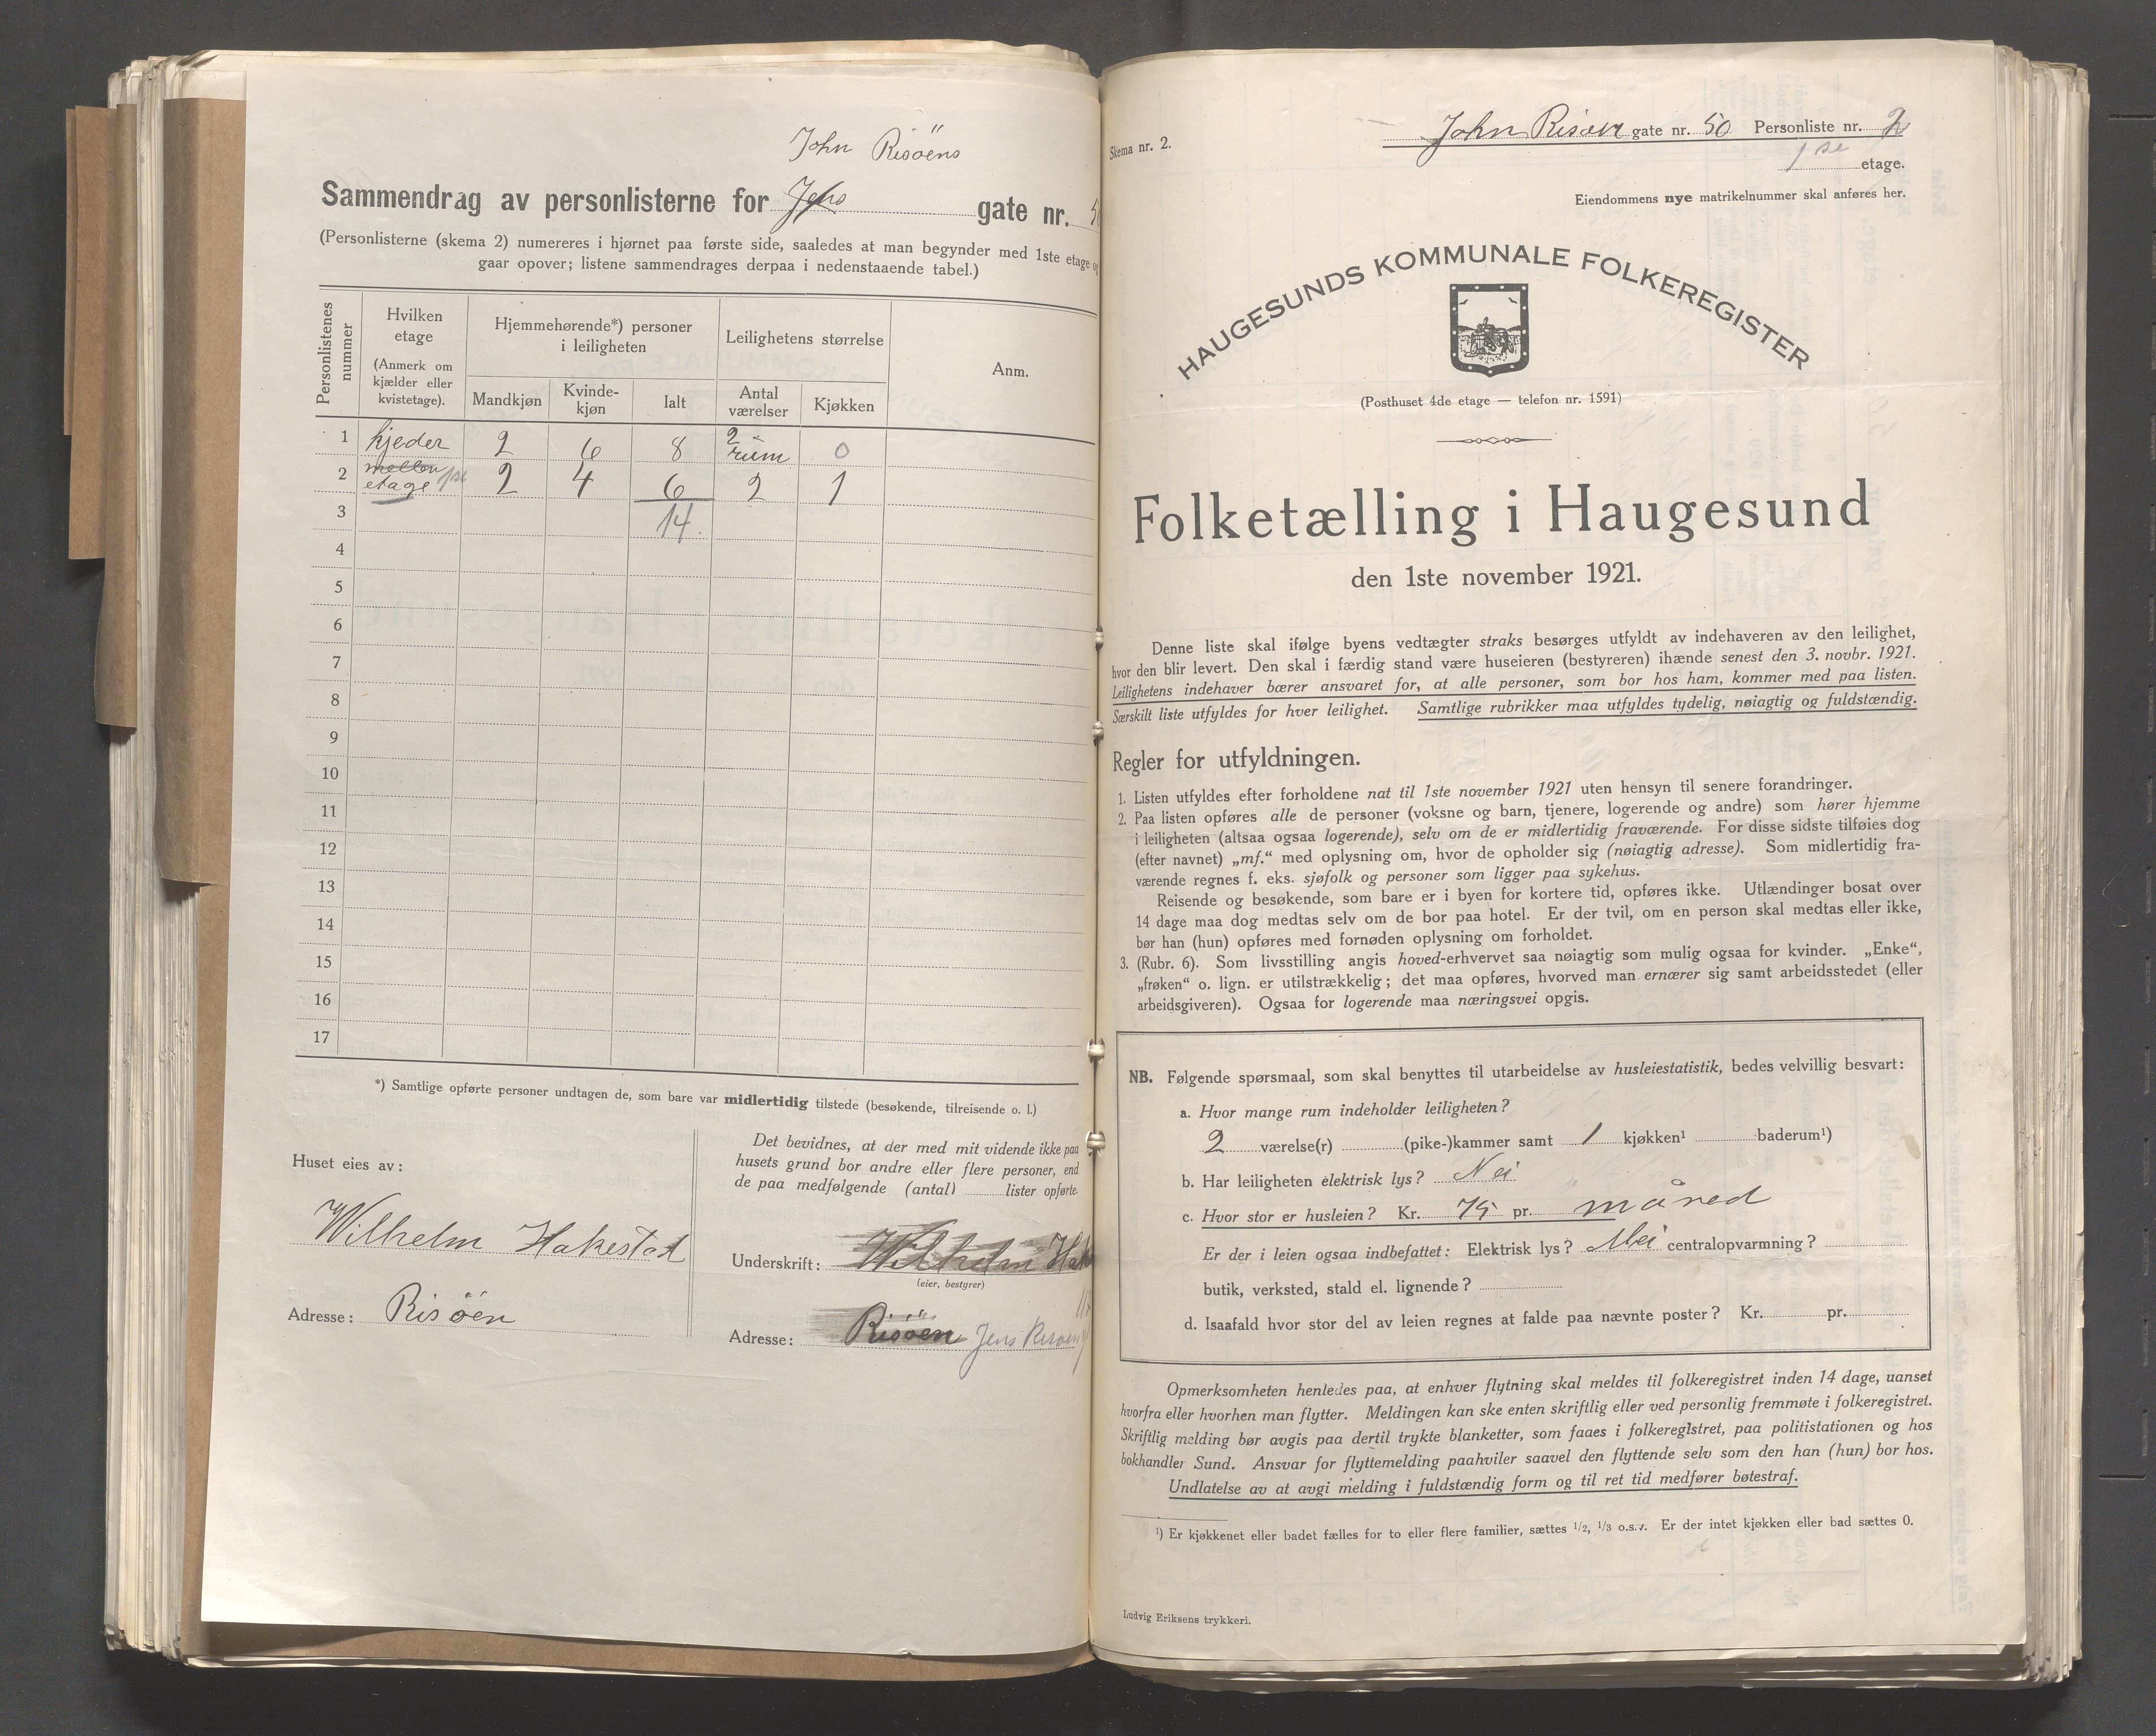 John Risöens
Sammendrag av personlisterne for Jens gate nr. 50
(Personlisterne (skema 2) numereres i hjørnet paa første side, saaledes at man begynder med 1ste etage og
gaar opover; listene sammendrages derpaa i nedenstaaende tabel.)
Personlistenes nummer
Hvilken etage
(Anmerk om kjælder eller kvistetage).
Hjemmehørende*) personer i leiligheten
Leilighetens størrelse
Anm.
Mandkjøn
Kvinde-kjøn
Ialt
Antal værelser
Kjøkken
1 kjeder 2 6 8 2 rum 0
2 mellem etage 1ste 2 4 6 2 1
3 14.
4
5
6
7
8
9
10
11
12
13
14
15
16
17
*) Samtlige opførte personer undtagen de, som bare var midlertidig tilstede (besøkende, tilreisende o. l.)
Huset eies av:
Wilhelm Hakestad
Adresse: Risöen
Det bevidnes, at der med mit vidende ikke paa
husets grund bor andre eller flere personer, end
de paa medfølgende (antal) lister opførte.
Underskrift: Wilhelm Hak
(eier, bestyrer)
Adresse: Risöen Jens Risoens
Skema nr. 2.
John Risøen gate nr. 50 Personliste nr. 2
1 ste etage.
Eiendommens nye matrikelnummer skal anføres her.
HAUGESUNDS KOMMUNALE FOLKEREGISTER
(Posthuset 4de etage — telefon nr. 1591)
Folketælling i Haugesund
den 1ste november 1921.
Denne liste skal ifølge byens vedtægter straks besørges utfyldt av indehaveren av den leilighet,
hvor den blir levert. Den skal i færdig stand være huseieren (bestyreren) ihænde senest den 3. novbr. 1921.
Leilighetens indehaver bærer ansvaret for, at alle personer, som bor hos ham, kommer med paa listen.
Særskilt liste utfyldes for hver leilighet. Samtlige rubrikker maa utfyldes tydelig, nøiagtig og fuldstændig.
Regler for utfyldningen.
1. Listen utfyldes efter forholdene nat til 1ste november 1921 uten hensyn til senere forandringer.
2. Paa listen opføres alle de personer (voksne og barn, tjenere, logerende og andre) som hører hjemme
i leiligheten (altsaa ogsaa logerende), selv om de er midlertidig fraværende. For disse sidste tilføies dog
(efter navnet) „mf.“ med oplysning om, hvor de opholder sig (nøiagtig adresse). Som midlertidig fra-
værende regnes f. eks. sjøfolk og personer som ligger paa sykehus.
Reisende og besøkende, som bare er i byen for kortere tid, opføres ikke. Utlændinger bosat over
14 dage maa dog medtas selv om de bor paa hotel. Er der tvil, om en person skal medtas eller ikke,
bør han (hun) opføres med fornøden oplysning om forholdet.
3. (Rubr. 6). Som livsstilling angis hoved-erhvervet saa nøiagtig som mulig ogsaa for kvinder. „Enke“,
„frøken“ o. lign. er utilstrækkelig; det maa opføres, hvorved man ernærer sig samt arbeidsstedet (eller
arbeidsgiveren). Ogsaa for logerende maa næringsvei opgis.
NB. Følgende spørsmaal, som skal benyttes til utarbeidelse av husleiestatistik, bedes velvillig besvart:
a. Hvor mange rum indeholder leiligheten?
2 værelse(r) (pike-)kammer samt 1 kjøkken¹ baderum¹)
b. Har leiligheten elektrisk lys? Nei
c. Hvor stor er husleien? Kr. 75 pr. måned
Er der i leien ogsaa indbefattet: Elektrisk lys? Nei centralopvarmning?
butik, verksted, stald el. lignende?
d. Isaafald hvor stor del av leien regnes at falde paa nævnte poster? Kr. pr.
Opmerksomheten henledes paa, at enhver flytning skal meldes til folkeregistret inden 14 dage, uanset
hvorfra eller hvorhen man flytter. Meldingen kan ske enten skriftlig eller ved personlig fremmøte i folkeregistret.
Skriftlig melding bør avgis paa dertil trykte blanketter, som faaes i folkeregistret, paa politistationen og hos
bokhandler Sund. Ansvar for flyttemelding paahviler saavel den flyttende selv som den han (hun) bor hos.
Undlatelse av at avgi melding i fuldstændig form og til ret tid medfører bøtestraf.
¹) Er kjøkkenet eller badet fælles for to eller flere familier, sættes 1/2, 1/3 o.s.v. Er der intet kjøkken eller bad sættes 0.
Ludvig Eriksens trykkeri.